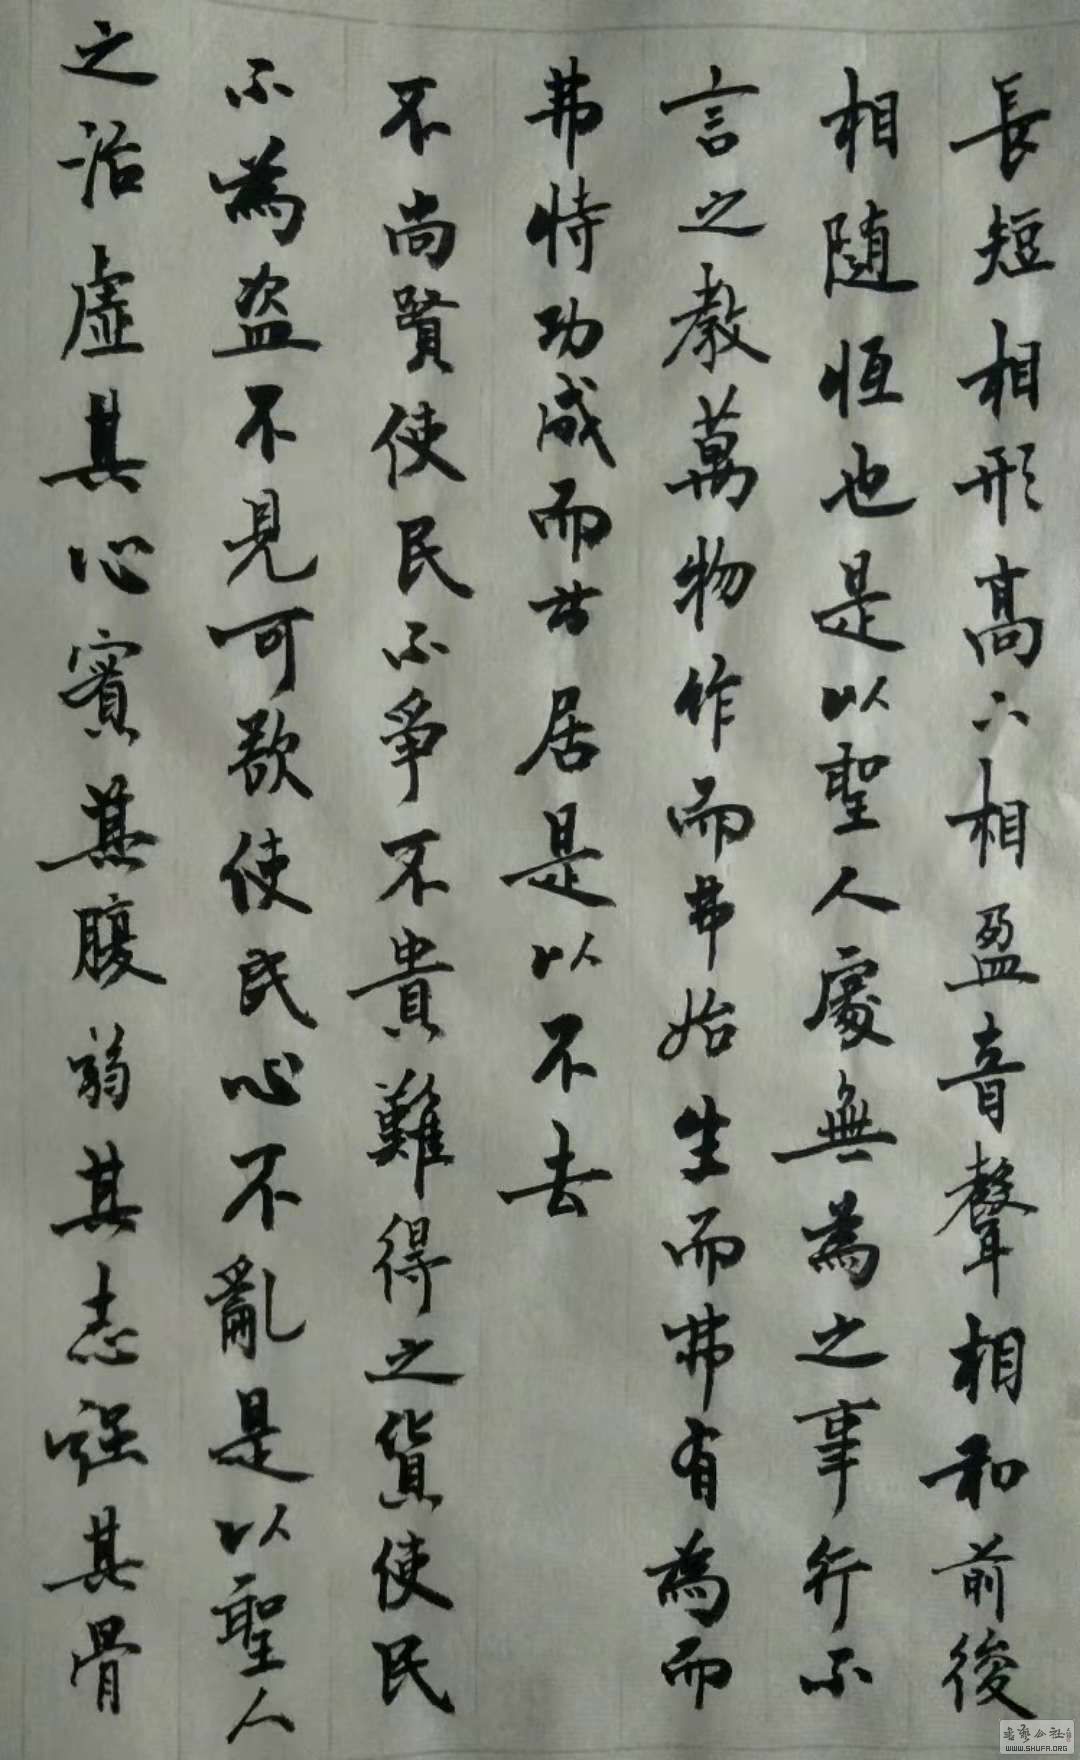 長短相形高下相盈音聲相和前後
相随恒也是以聖人處無為之事行不
言之教萬物作而弗始生而弗有為而
弗恃功成而弗居是以不去
不尚賢使民不爭不貴難得之貨使民
不為盜不見可欲使民心不亂是以聖人
之治虛其心實其腹弱其志强其骨
書藝公社
WWW.SHUFA.ORG